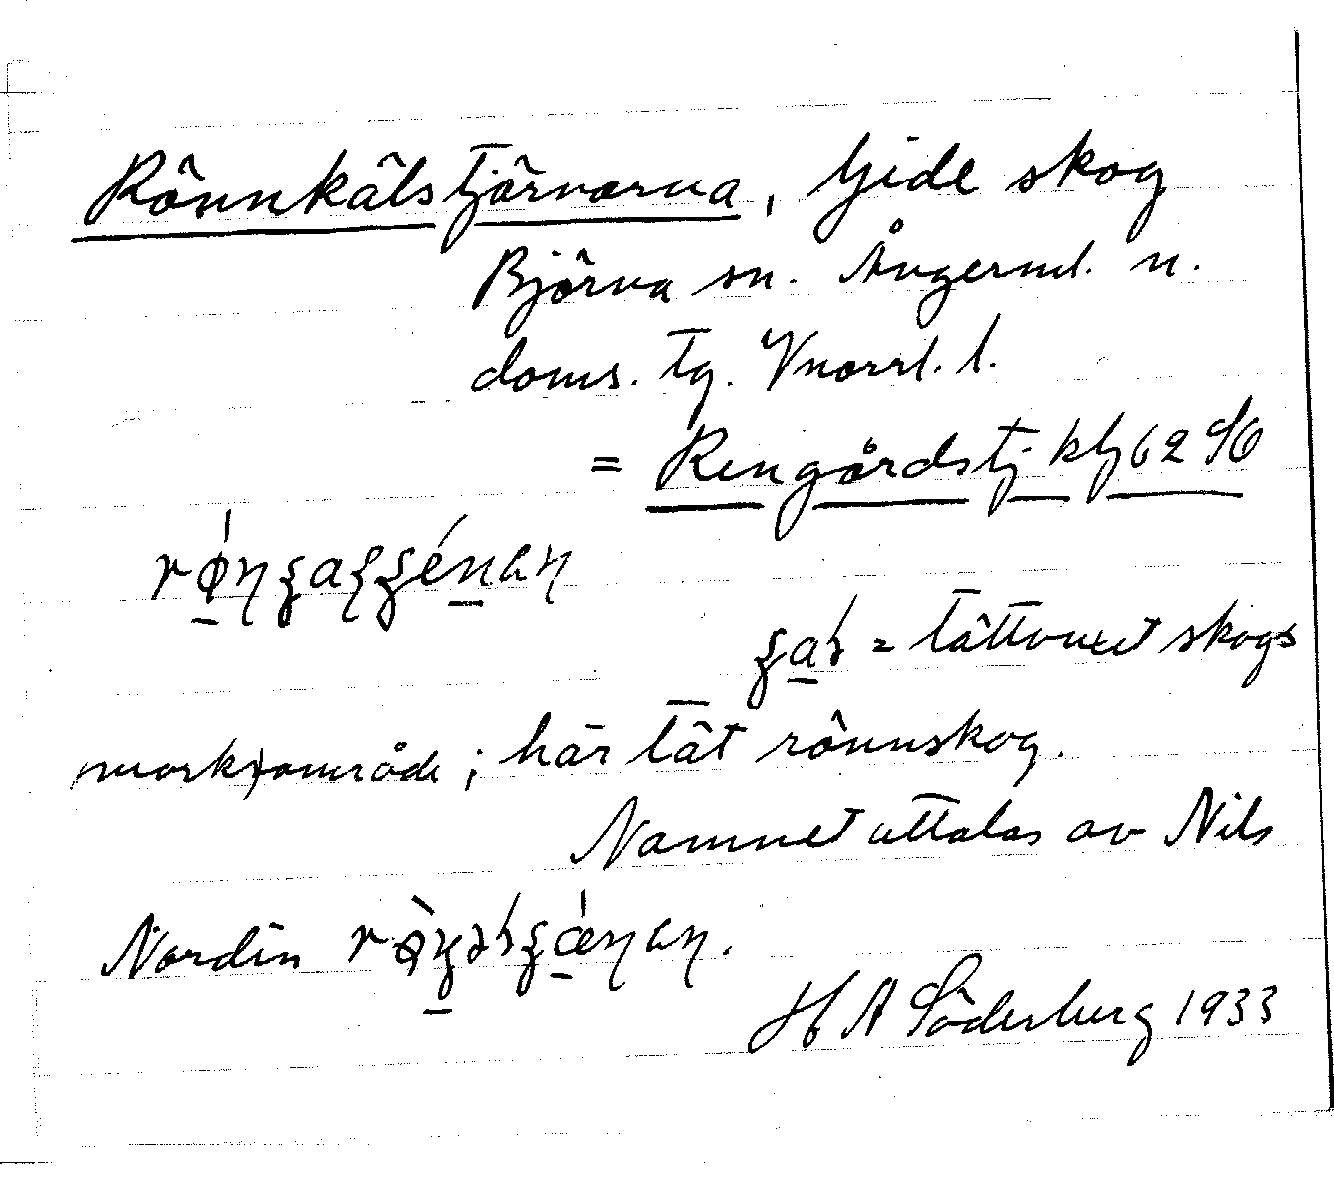 Rönnkälstjärnarna, Gide skog
Björna sn. Ångerml. n.
doms. tg. Vnorrl. l.
= Rengårdstj. kbl 62 SO
= tättvuxet skogs
marksområde; här tät rönnskog.
Namnet uttalas av Nils
Nordin
H A Söderberg 1933